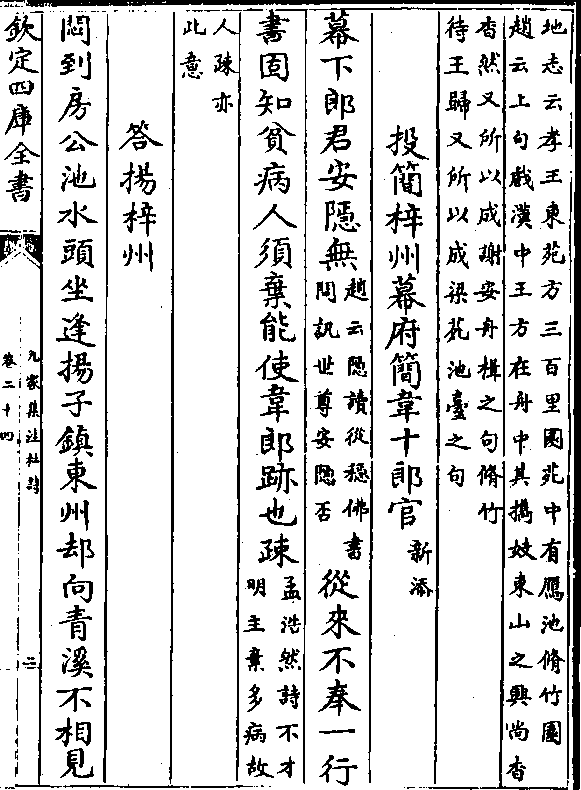 地志云孝王東苑方三百里國苑中有鴈池脩竹園
趙云上句戲漢中王方在舟中其攜妓東山之興尚杳
杳然又所以成謝安舟楫之句脩竹
待王歸又所以成梁苑池臺之句
投簡梓州幕府簡韋十郎官 新添
幕下郎君安隱無 趙云隱讀從穩佛書問訊世尊安隱否 從來不奉一行
書固知貧病人須棄能使韋郎跡也疎 孟浩然詩不才明主棄多病故
人疎亦此意
答揚梓州
悶到房公池水頭坐逢揚子鎮東州却向青溪不相見
欽定四庫全書
九家集注杜詩
卷二十四
三